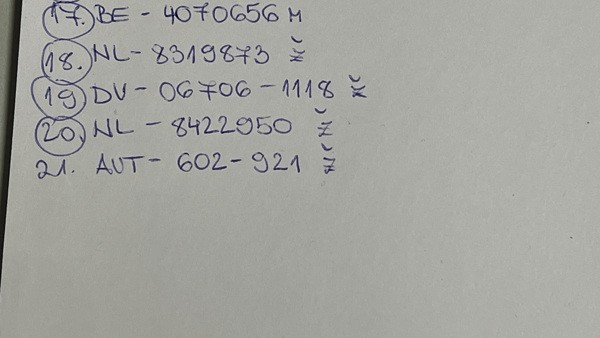 17. BE - 4070656 M
18. NL - 8319873 Ž
19 DV - 06706 - 1118 Ž
20. NL - 8422950 Ž
21. AUT - 602 - 921 Ž